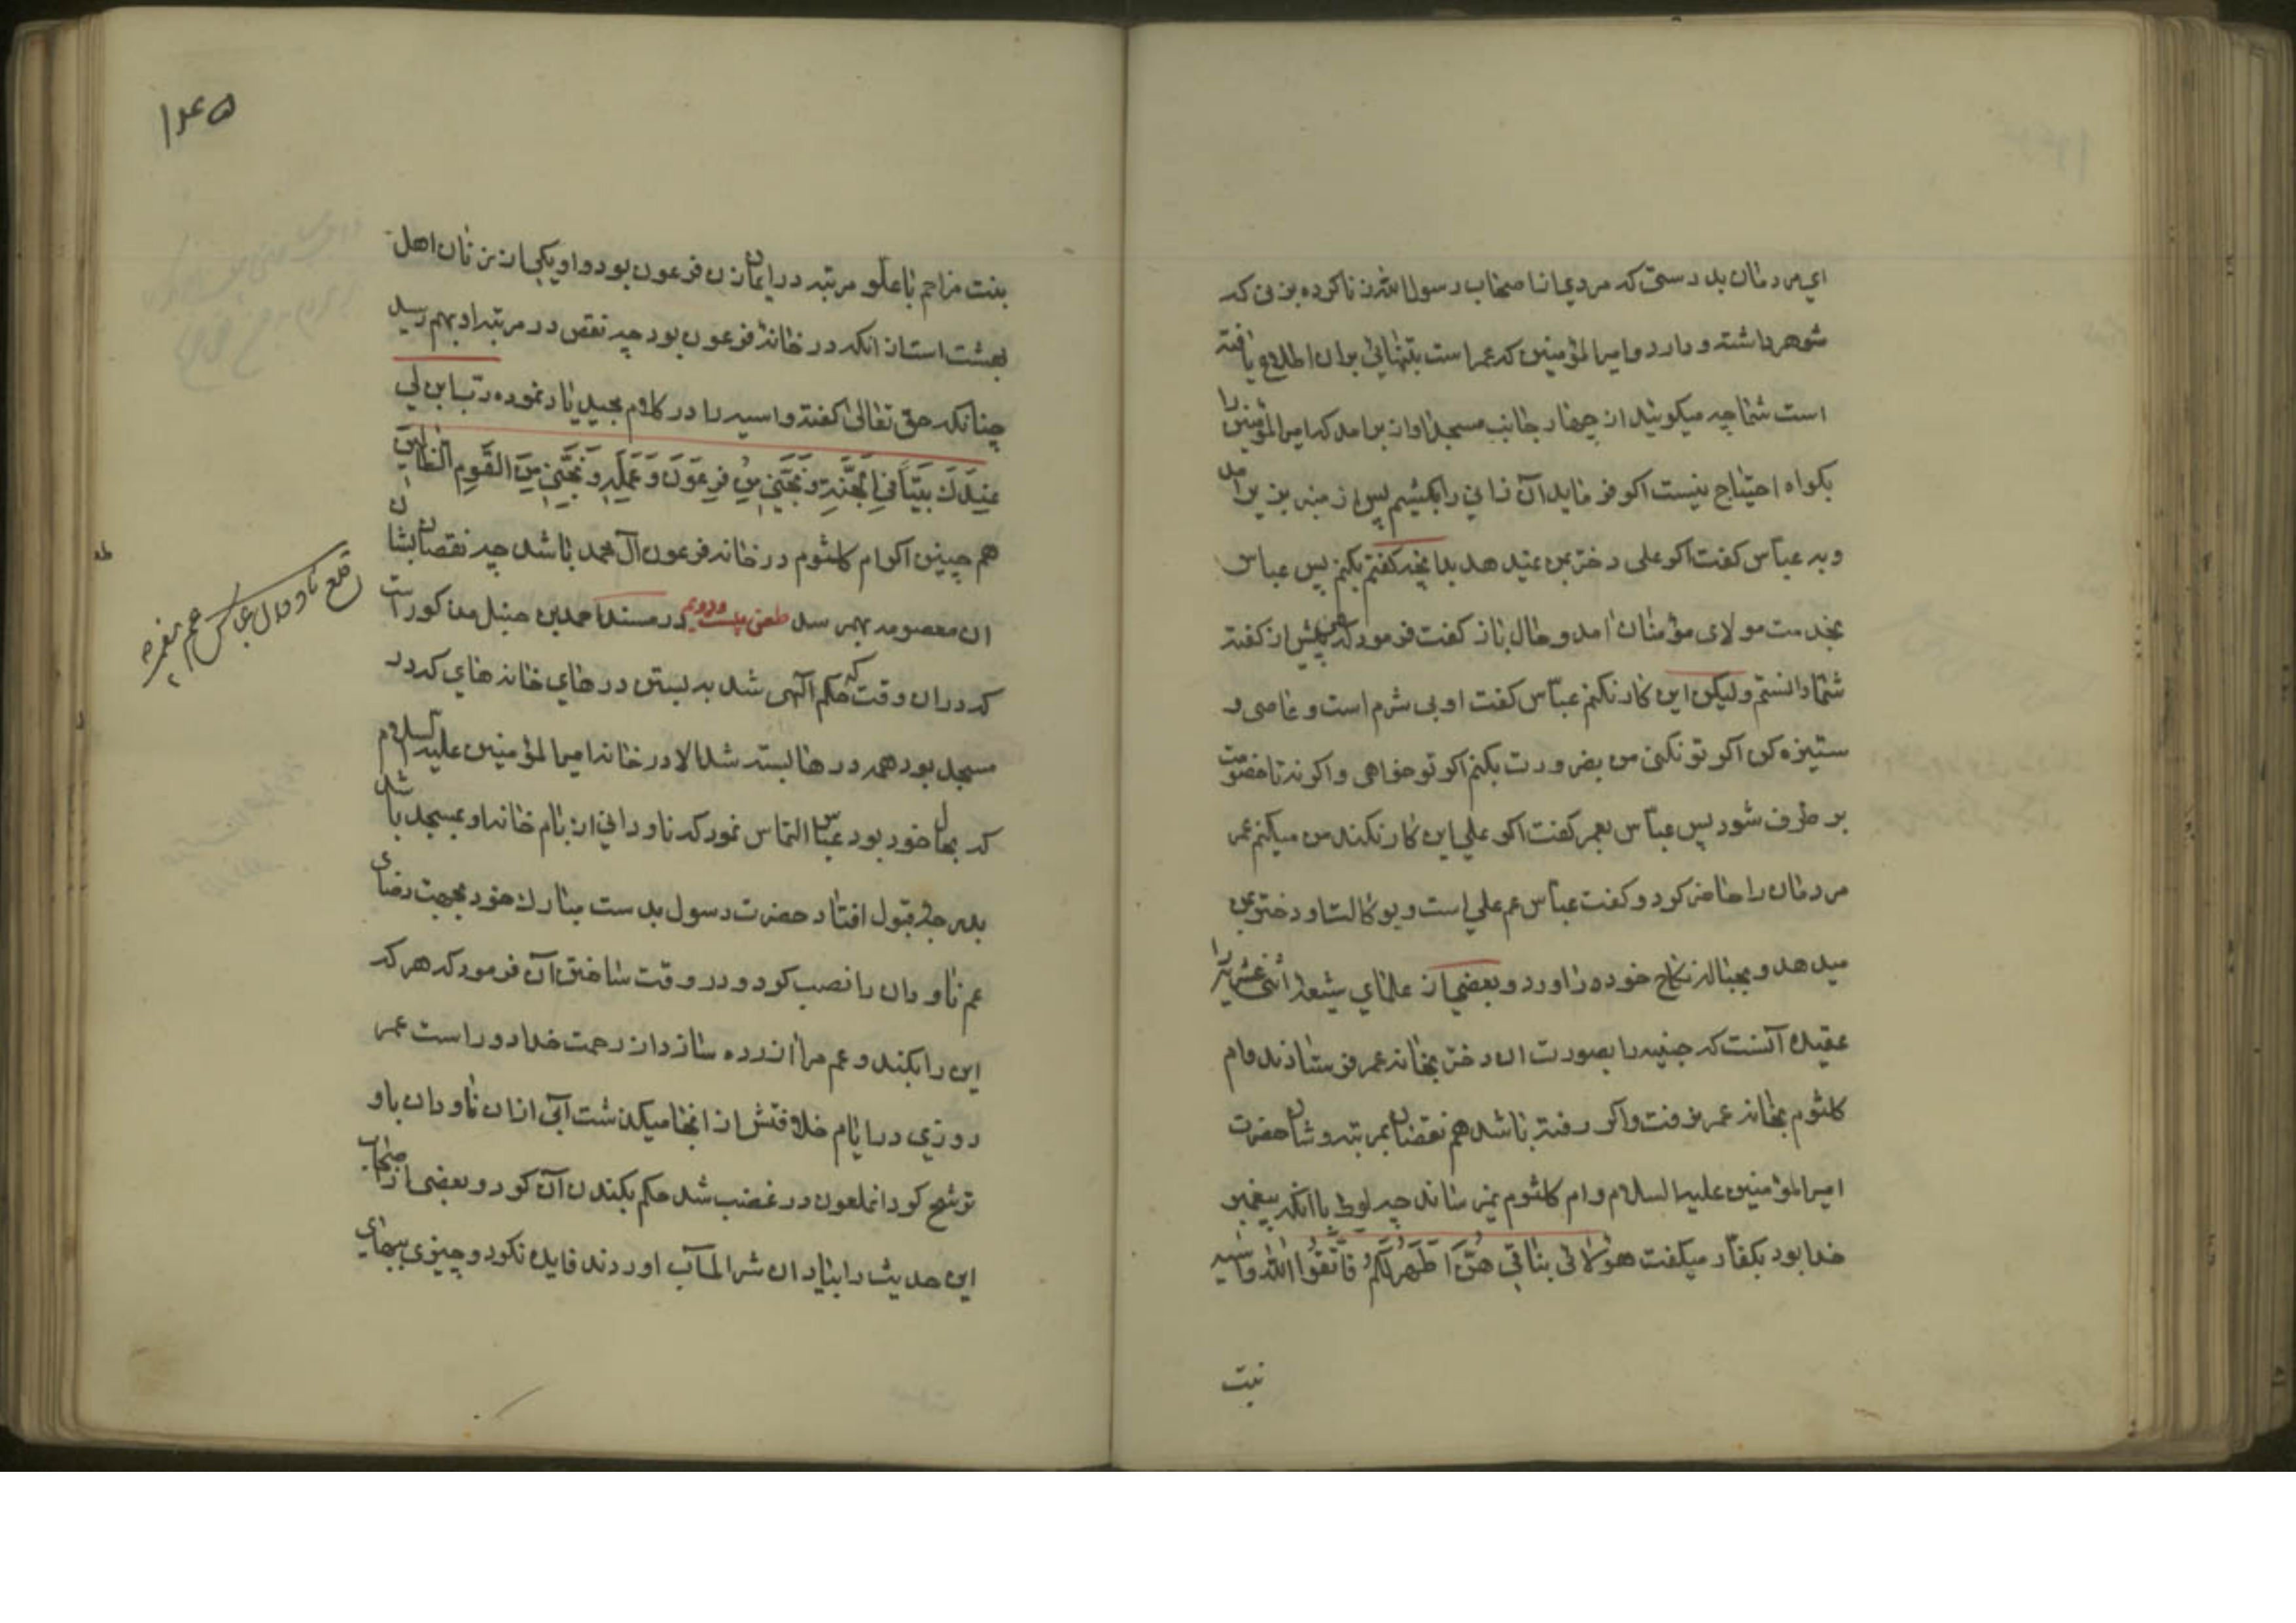 ای مردمان بدرستی که مردی از اصحاب رسول الله زنا کرده بزنی که
شوهر داشته و دارد و امیرالمؤمنین که عمر است بتنهائی بران اطلاع یافته
است شما چه میکوئید از چهار جانب مسجد اواز برامد که امیرالمؤمنین را
بکواه احتیاج نیست اکر فرماید آن زانی را بکشیم پس از منبر بزیر امد
و به عباس کفت اکر علی دختر بمن عید هد بدانچه کفتم بکنم پس عباس
بخدمت مولای مؤمنان امد و حال باز کفت فرمود که من پیش از کفته
شما دانستم ولیکن این کار نکنم عباس کفت او بی شرم است و عاصی و
ستیزه کن اکر تو نکنی من بضرورت بکنم اکر تو خواهی و اکر نه تا خصومت
بر طرف شود پس عباس بعمر کفت اکر علی این کار نکند من میکنم عمر
مردمان را حاضر کرد و کفت عباس عم علی است و بوکالت او دختر بمن
میدهد و بحباله نکاح خود در اورد و بعضی از علمای شیعه اثنی عشریه را
عقیده آنست که جنیه را بصورت ان دختر بخانه عمر فرستادند و ام
کلثوم بخانه عمر نرفت و اکر رفته باشد هم نقصان بمرتبه و شان حضرت
امیرالمؤمنین علیه السلام و ام کلثوم نمیرساند چه لوط با انکه پیغمبر
خدا بود بکفار میکفت هؤلائی بناتی هُنَّ اَطْهَرُ لَکُمْ فَاتَّقُوا اللّٰه و آسیه
بنت
۱۴۵
بنت مزاحم با علو مرتبه در ایمان زن فرعون بود و او یکی از زنان اهل
بهشت است از انکه در خانهٔ فرعون بود چه نقص در مرتبه او بهم رسید
چنانکه حق تعالی کفته و اسیه را در کلام مجید یاد نموده رب ابن لی
عِنْدَکَ بَیْتًا فِی الْجَنَّةِ وَ نَجِّنِی مِنْ فِرْعَوْنَ وَ عَمَلِهِ وَ نَجِّنِی مِنَ الْقَوْمِ الظَّالِمِینَ
هم چنین اکر ام کلثوم در خانه فرعون آل محمد باشد چه نقصان بشان
ان معصومه بهم رسد طعن بیست ودویم در مسند احمد بن حنبل مذکور است
که دران وقت که حکم الهی شد به بستن درهای خانه های که در
مسجد بود همه درها بسته شد الا در خانه امیرالمؤمنین علیه السلام
که بحال خود بود عباس التماس نمود که ناودانی از بام خانه او بمسجد باشد
بدرجهٔ قبول افتاد حضرت رسول بدست مبارک خود بجهت رضای
عم ناودان را نصب کرد و در وقت ساختن آن فرمود که هر که
این را بکند و عم مرا ازرده سازد از رحمت خدا دور است عمر
روزی در ایام خلافتش از انجا میکذشت آبی ازان ناودان باو
ترشح کرد انملعون در غضب شد حکم بکندن آن کرد و بعضی از اصحاب
این حدیث را بیاد ان شر المآب اوردند فایده نکرد و چیزی بیجای
قلع ناودان عباس عم پیغمبر ص